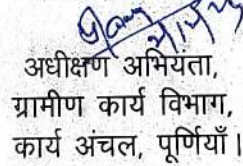 अधीक्षण अभियंता,
ग्रामीण कार्य विभाग,
कार्य अंचल, पूर्णियाँ।